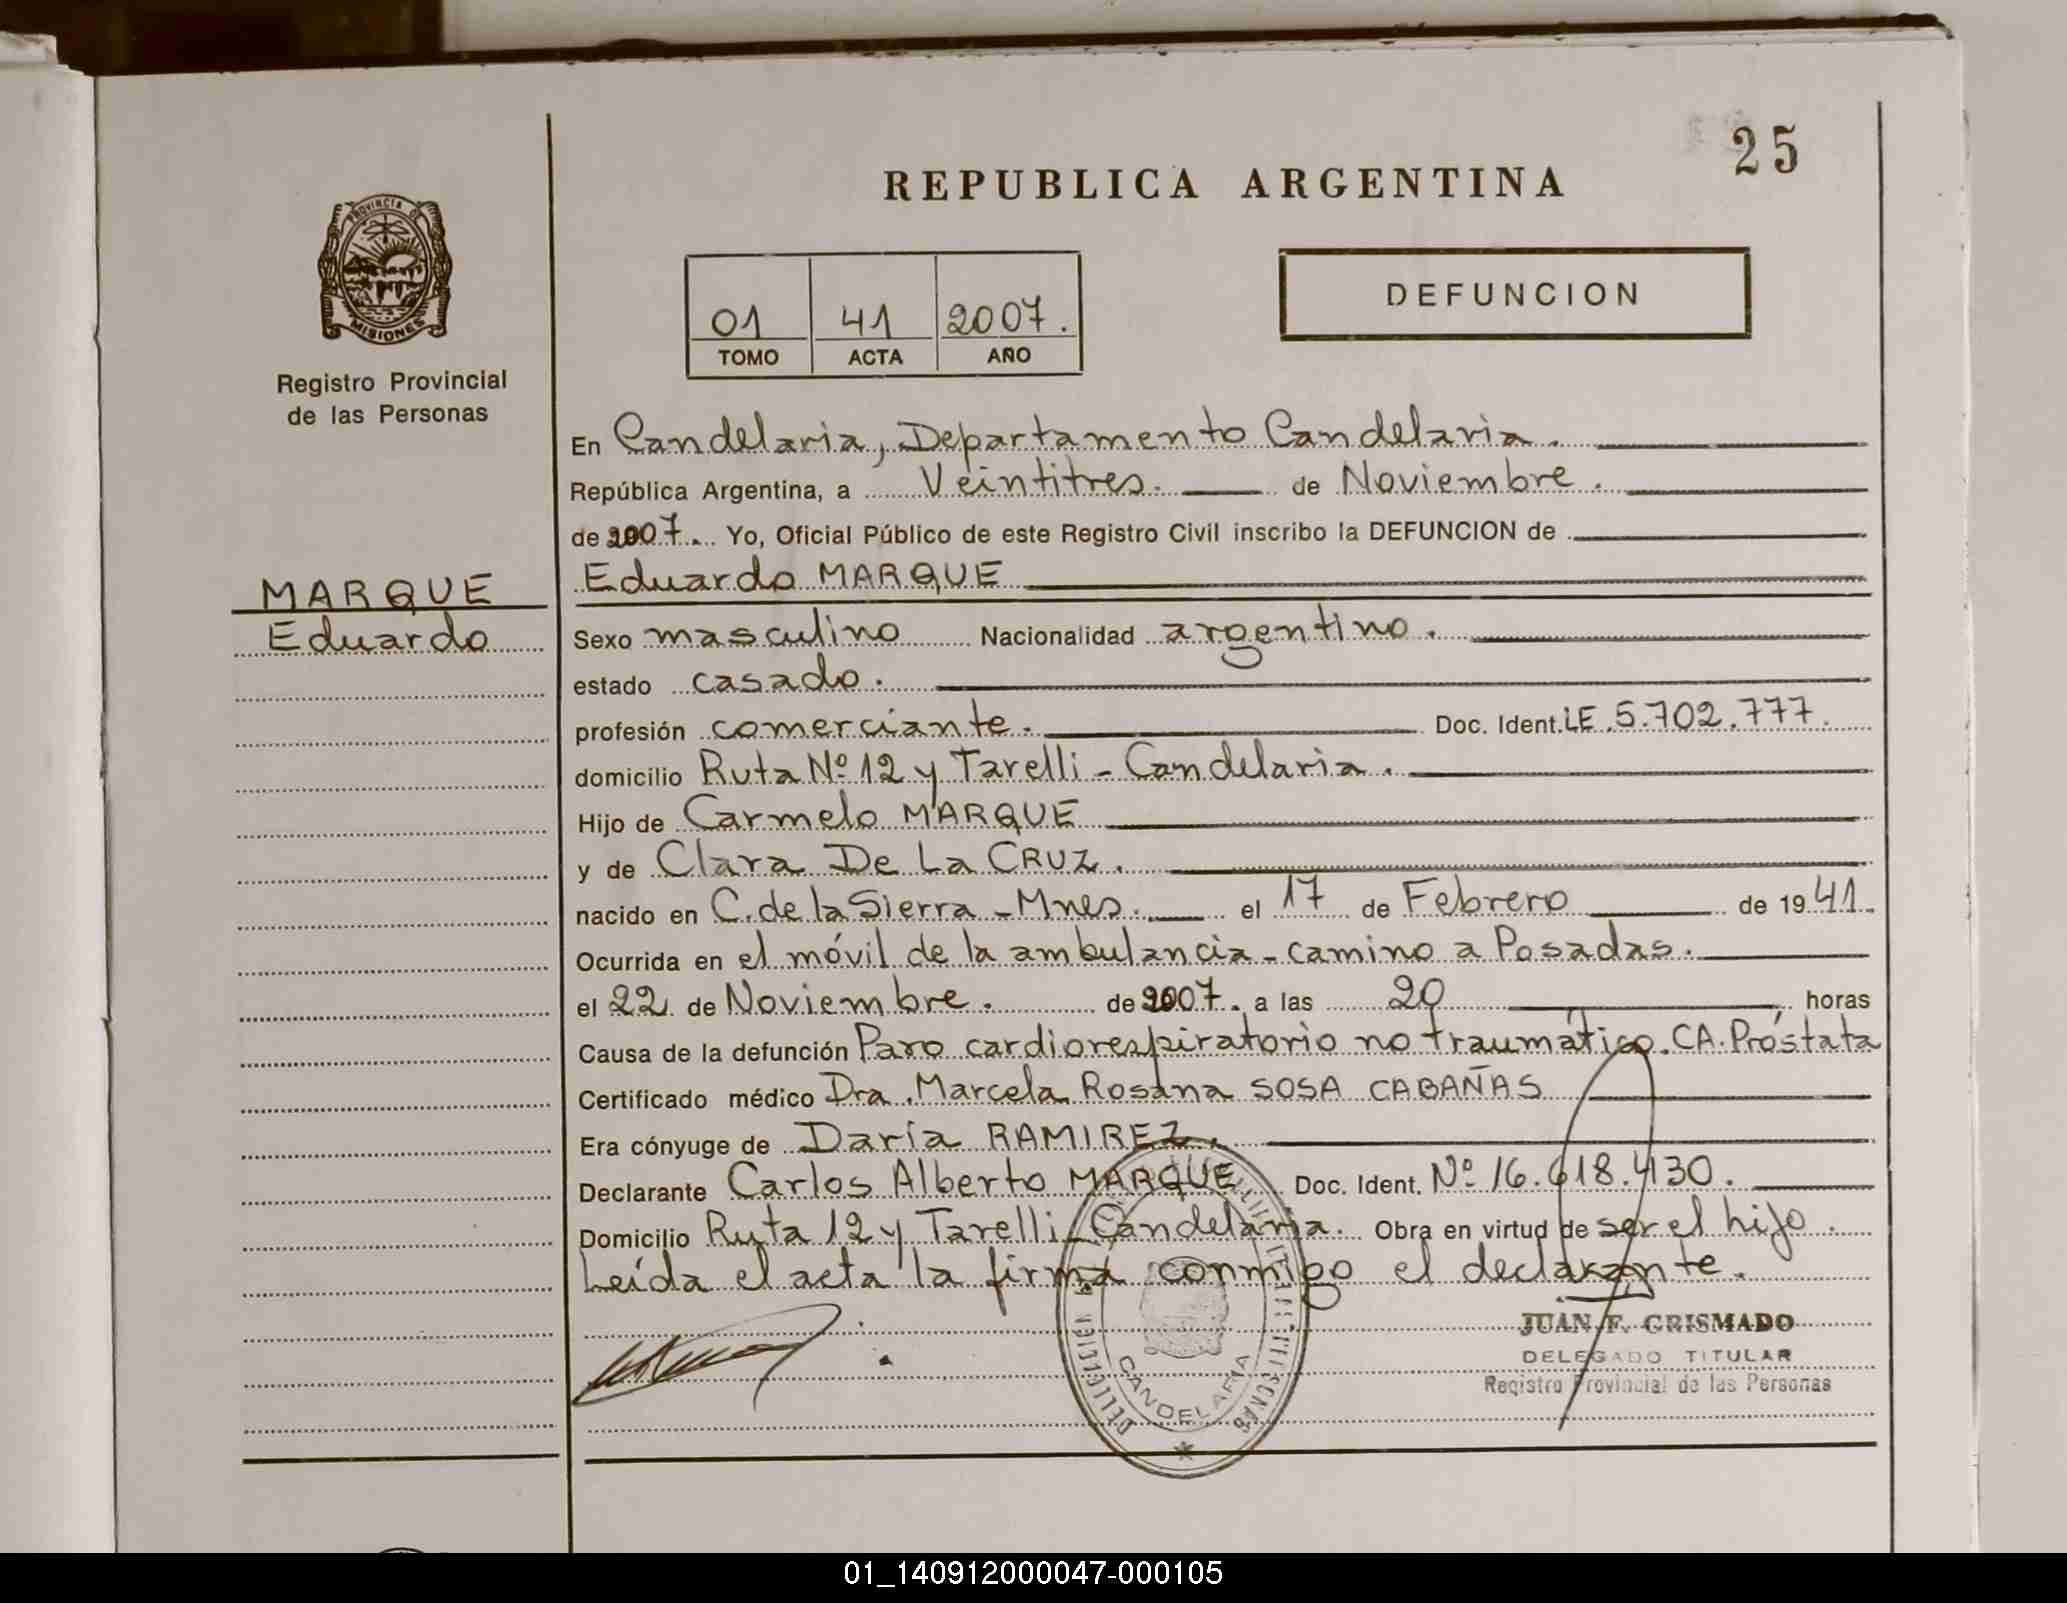 25
REPUBLICA ARGENTINA
PROVINCIA DE
MISIONES
Registro Provincial
de las Personas
01 41 2007.
TOMO ACTA AÑO
DEFUNCION
En Candelaria, Departamento Candelaria.
República Argentina, a Veintitres. de Noviembre.
de 2007. Yo, Oficial Público de este Registro Civil inscribo la DEFUNCION de
MARQUE
Eduardo
Eduardo MARQUE
Sexo masculino Nacionalidad argentino.
estado casado.
profesión comerciante. Doc. Ident. LE.5.702.777.
domicilio Ruta Nº 12 y Tarelli - Candelaria.
Hijo de Carmelo MARQUE
y de Clara De La CRUZ.
nacido en C. de la Sierra - Mnes. el 17 de Febrero de 1941.
Ocurrida en el móvil de la ambulancia - camino a Posadas.
el 22 de Noviembre. de 2007. a las 20 horas
Causa de la defunción Paro cardiorespiratorio no traumático. CA. Próstata
Certificado médico Dra. Marcela Rosana SOSA CABAÑAS
Era cónyuge de Daría RAMIREZ.
Declarante Carlos Alberto MARQUE Doc. Ident. Nº 16.618.430.
Domicilio Ruta 12 y Tarelli - Candelaria. Obra en virtud de ser el hijo.
Leída el acta la firma conmigo el declarante.
CANDELARIA
JUAN F. GRISMADO
DELEGADO TITULAR
Registro Provincial de las Personas
01_140912000047-000105